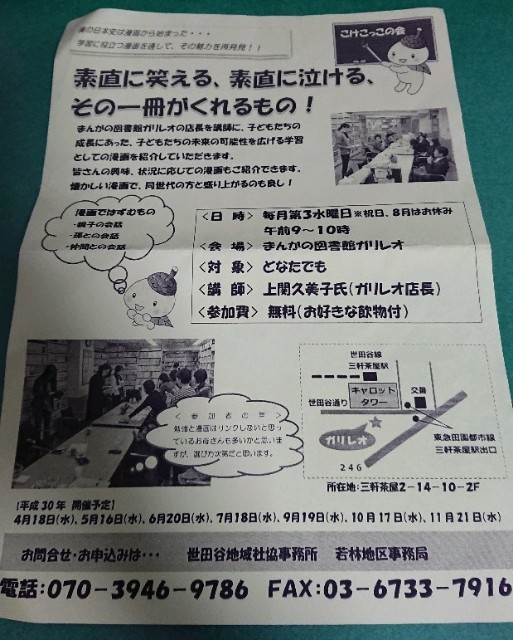 僕の日本史は漫画から始まった・・・
学習に役立つ漫画を通して、その魅力を再発見！！
こけこっこの会
素直に笑える、素直に泣ける、
その一冊がくれるもの！
まんがの図書館ガリレオの店長を講師に、子どもたちの
成長にあった、子どもたちの未来の可能性を広げる学習
としての漫画を紹介していただきます。
皆さんの興味、状況に応じての漫画もご紹介できます。
懐かしい漫画で、同世代の方と盛り上がるのも良し！
漫画ではずむもの
・親子の会話
・孫との会話
・仲間との会話
＜日 時＞ 毎月第3水曜日※祝日、8月はお休み
午前9～10時
＜会 場＞ まんがの図書館ガリレオ
＜対 象＞ どなたでも
＜講 師＞ 上関久美子氏(ガリレオ店長)
＜参加費＞ 無料(お好きな飲物付)
＜参加者の声＞
勉強と漫画はリンクしないと思っ
ているお母さんも多いかと思いま
すが、選び方次第だと思います。
世田谷線
三軒茶屋駅
キャロット
タワー
交番
世田谷通り
ガリレオ
東急田園都市線
三軒茶屋駅出口
246
所在地：三軒茶屋2－14－10－2F
【平成30年 開催予定】
4月18日(水)、5月16日(水)、6月20日(水)、7月18日(水)、9月19日(水)、10月17日(水)、11月21日(水)
お問合せ・お申込みは・・・ 世田谷地域社協事務所 若林地区事務局
電話：070－3946－9786 FAX：03－6733－7916